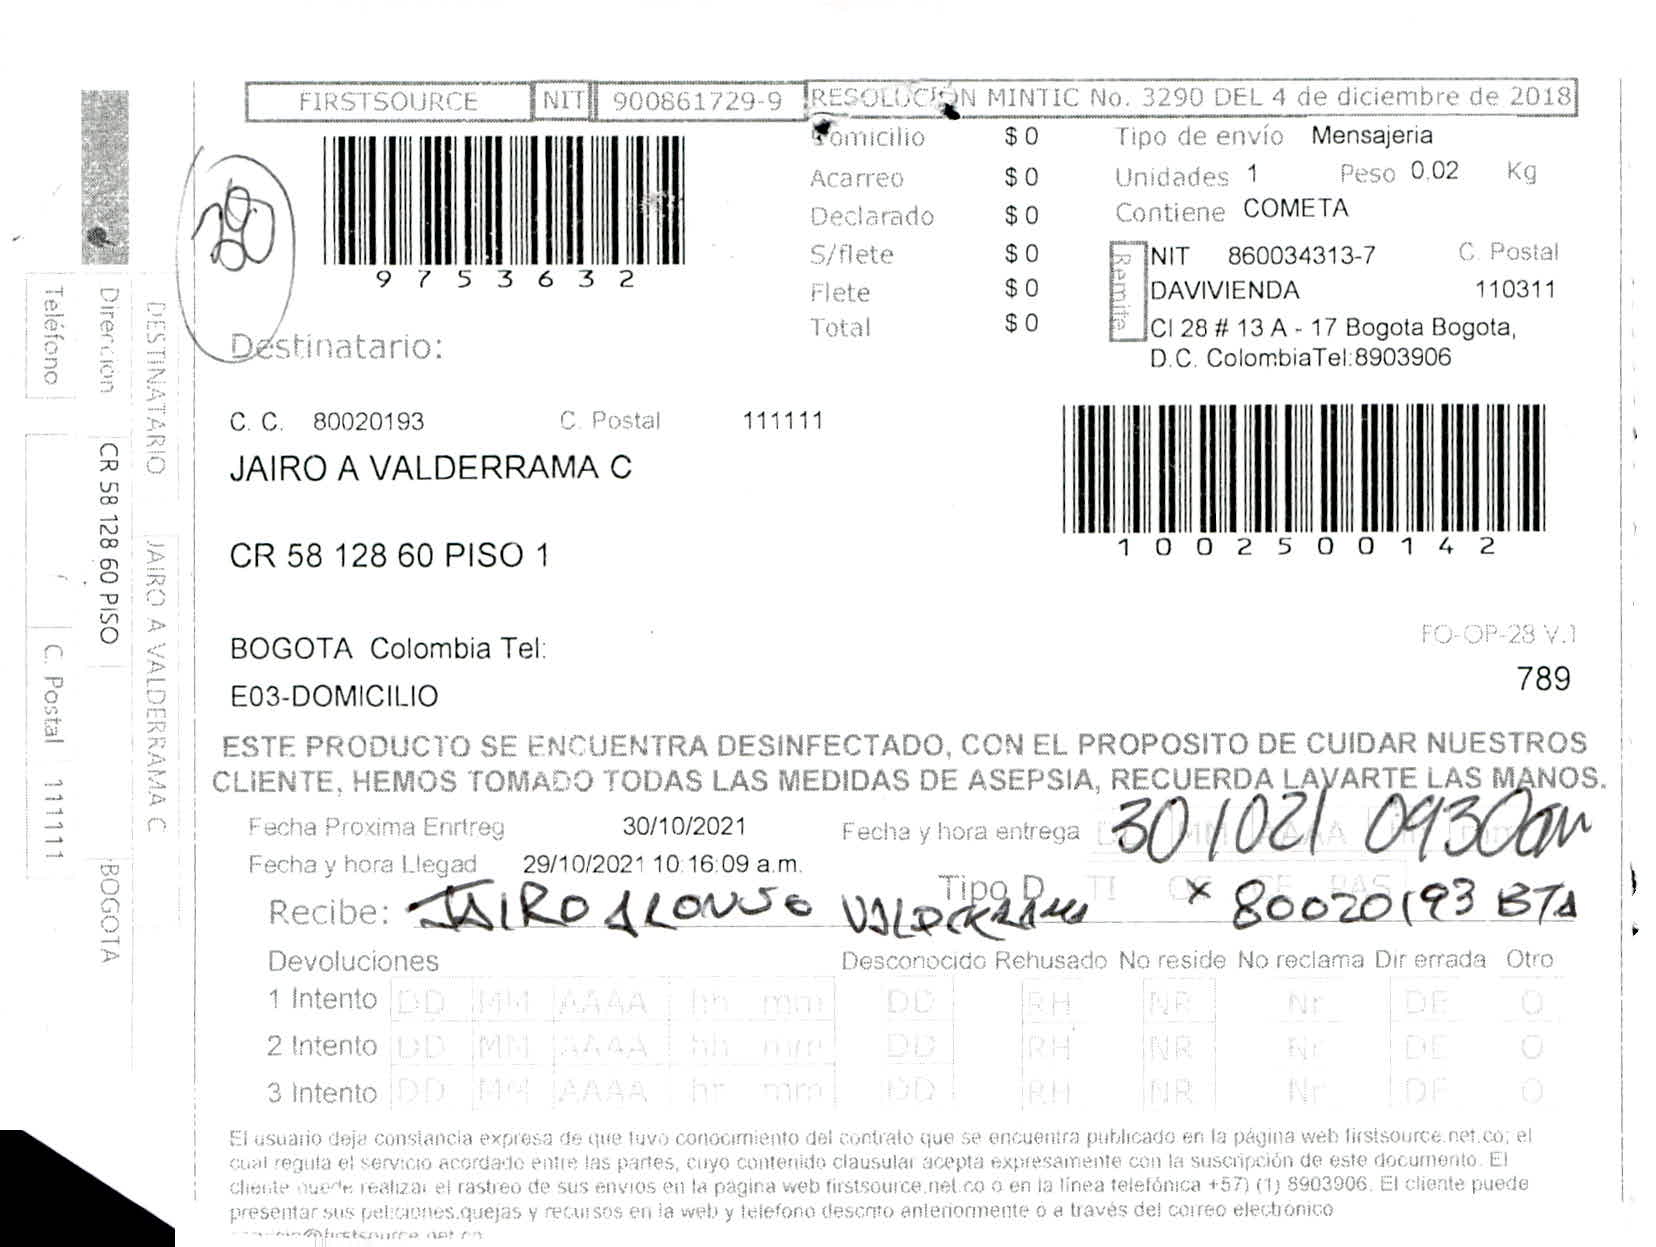 FIRSTSOURCE NIT 900861729-9 RESOLUCION MINTIC No. 3290 DEL 4 de diciembre de 2018
Domicilio $ 0 Tipo de envío Mensajeria
Acarreo $ 0 Unidades 1 Peso 0.02 Kg
Declarado $ 0 Contiene COMETA
S/flete $ 0
Flete $ 0
Total $ 0
Remite
NIT 860034313-7 C. Postal
DAVIVIENDA 110311
Cl 28 # 13 A - 17 Bogota Bogota,
D.C. ColombiaTel:8903906
9753632
Destinatario:
C. C. 80020193 C. Postal 111111
JAIRO A VALDERRAMA C
CR 58 128 60 PISO 1
1002500142
BOGOTA Colombia Tel:
E03-DOMICILIO
FO-OP-28 V.1
789
ESTE PRODUCTO SE ENCUENTRA DESINFECTADO, CON EL PROPOSITO DE CUIDAR NUESTROS
CLIENTE, HEMOS TOMADO TODAS LAS MEDIDAS DE ASEPSIA, RECUERDA LAVARTE LAS MANOS.
Fecha Proxima Enrtreg 30/10/2021 Fecha y hora entrega 30/1021 0930am
Fecha y hora Llegad 29/10/2021 10:16:09 a.m.
Tipo D TI CC CE PAS
Recibe: JAIRO ALONSO VALDERRAMA x 80020193 BTA
Devoluciones Desconocido Rehusado No reside No reclama Dir errada Otro
1 Intento DD MM AAAA hh mm DD RH NR Nr DE O
2 Intento DD MM AAAA hh mm DD RH NR Nr DE O
3 Intento DD MM AAAA hr mm DD RH NR Nr DE O
El usuario deja constancia expresa de que tuvo conocimiento del contrato que se encuentra publicado en la página web firstsource.net.co; el
cual regula el servicio acordado entre las partes, cuyo contenido clausular acepta expresamente con la suscripción de este documento. El
cliente puede realizar el rastreo de sus envios en la pagina web firstsource.net.co o en la línea telefónica +57) (1) 8903906. El cliente puede
presentar sus peticiones,quejas y recursos en la web y telefono descrito anteriormente o a través del correo electronico
@firstsource.net.co
DESTINATARIO JAIRO A VALDERRAMA C
Dirección CR 58 128 60 PISO BOGOTA
Teléfono C. Postal 111111